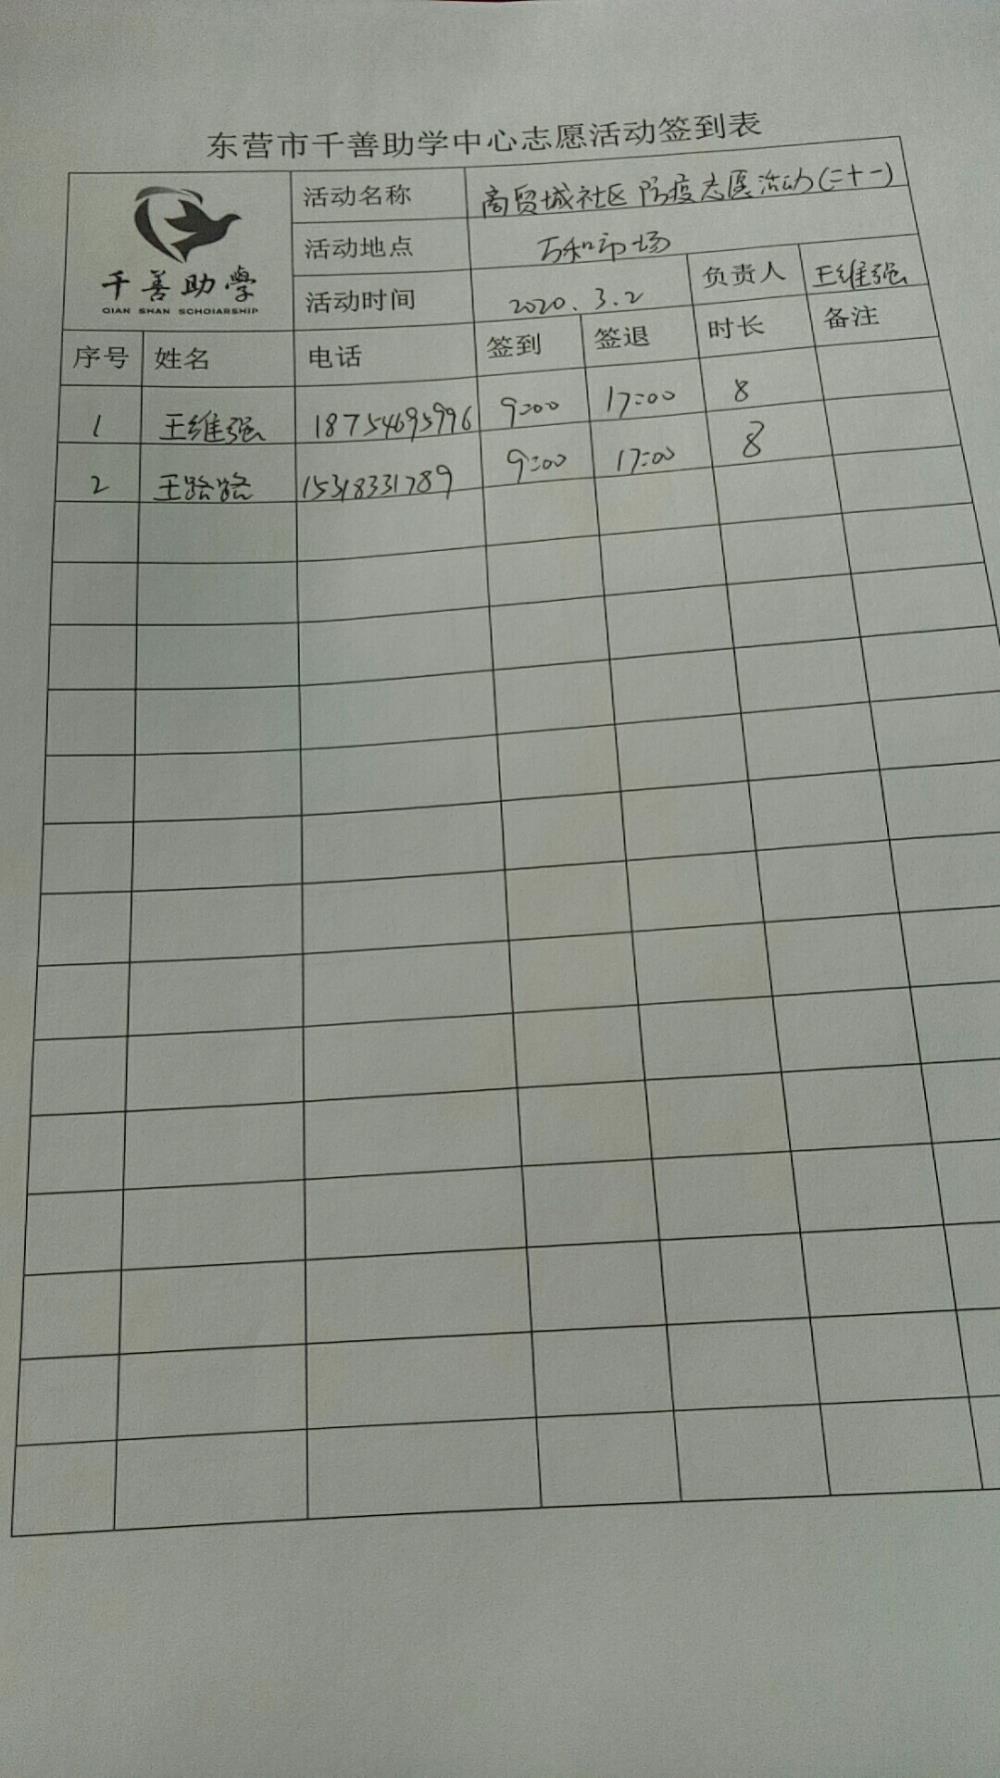 东营市千善助学中心志愿活动签到表
千善助学
QIAN SHAN SCHOIARSHIP
活动名称 商贸城社区防疫志愿活动(二十一)
活动地点 万和市场
活动时间 2020.3.2 负责人 王维强
序号 姓名 电话 签到 签退 时长 备注
1 王维强 18754695996 9:00 17:00 8
2 王路路 15318331789 9:00 17:00 8